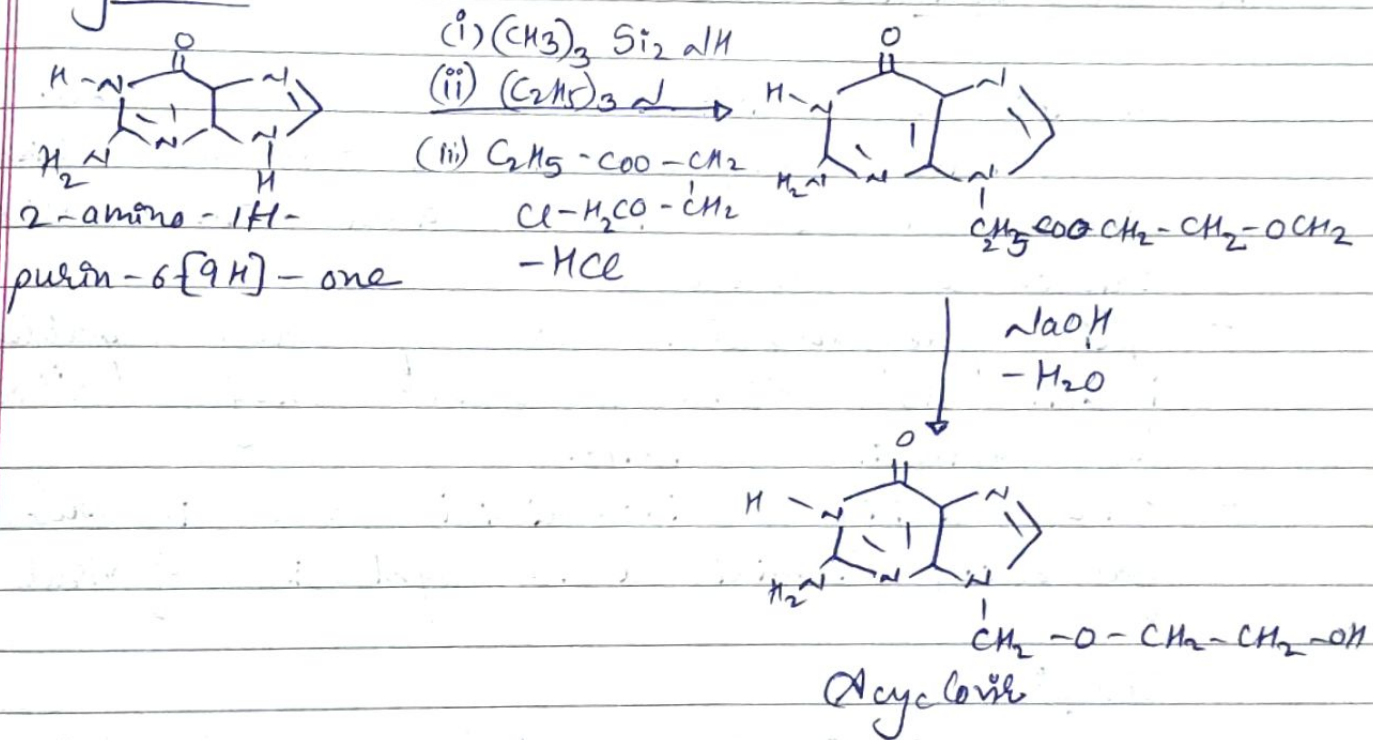 O
H-N N
H2N N N
H
2-amino-1H-
purin-6[9H]-one
(i) (CH3)3 Si2 NH
(ii) (C2H5)3 N
(iii) C2H5-COO-CH2
Cl-H2CO-CH2
-HCl
O
H-N N
H2N N N
C2H5COO CH2-CH2-OCH2
NaOH
-H2O
O
H-N N
H2N N N
CH2-O-CH2-CH2-OH
Acyclovir